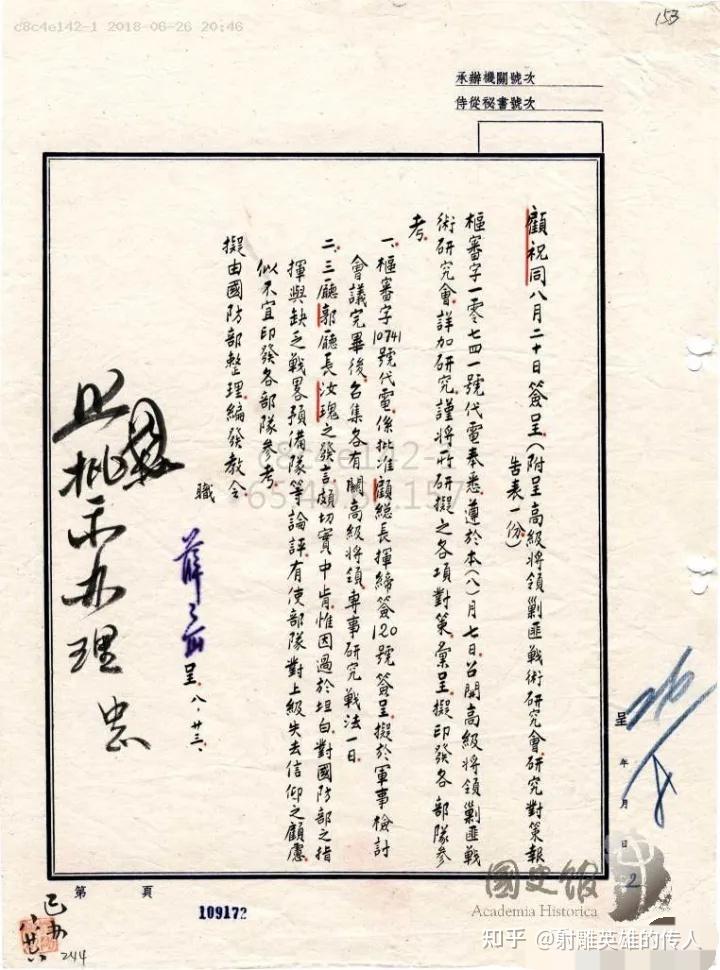 c8c4e142-1 2018-06-26 20:46
153
承辦機關號次
侍從秘書號次
顧祝同八月二十日簽呈(附呈高級將領剿匪戰術研究會研究對策報
告表一份)
樞審字一零七四一號代電奉悉遵於本(八)月七日召開高級將領剿匪戰
術研究會詳加研究謹將所研擬之各項對策彙呈擬印發各部隊參
考
一、樞審字10741號代電係批准顧總長揮締簽120號簽呈擬於軍事檢討
會議完畢後召集各有關高級將領專事研究戰法一日
二、三廳郭廳長汝瑰之發言頗切實中肯惟因過於坦白對國防部之指
揮與缺乏戰畧預備隊等論評有使部隊對上級失去信仰之顧慮
似不宜印發各部隊參考
擬由國防部整理編發教令
職
薛岳
呈 八、廿三、
批示办理
呈
年
月
日
2
第 頁
109172
已办
244
國史館
Academia Historica
知乎 @射雕英雄的传人